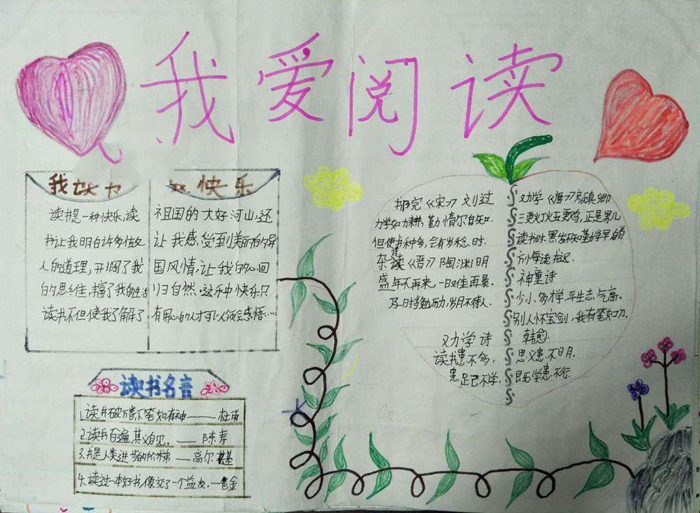 我爱阅读
快乐
读书是一种快乐,读
书让我明白许多做
人的道理,开阔了我
的思维,丰富了我的生活
读书不但使我了解了
祖国的大好河山,还
让我感受到美丽的
国风情,让我的心回
归自然。这乐中快乐只
有用心的人才可
读书名言
1.读书破万卷下笔如有神——杜甫
2.读书百遍,其义自见。——陈寿
3.书是人类进步的阶梯——高尔基
4.读过一本好书,像交了一个益友.
柳 《宋》刘过
力学如力耕,勤惰尔自知.
但使书种多,会有岁稔时.
杂诗《晋》陶渊明
盛年不再来,一日难再晨.
及时当勉励,岁月不待人.
劝学诗
读书患不多,
患足已不学.
劝学《唐》
三更灯火五更鸡,正是男儿
读书时.黑发不知勤学早,白首
方悔读书迟.
神童诗
少小多才学,平生志气高.
别人怀宝剑,我有笔如刀.
韩愈.
思义患不明.
既学患不行.